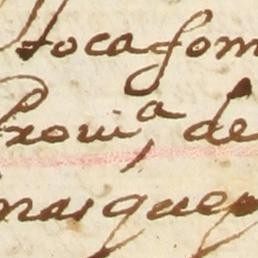 toca som
Proui^a, de
mas que